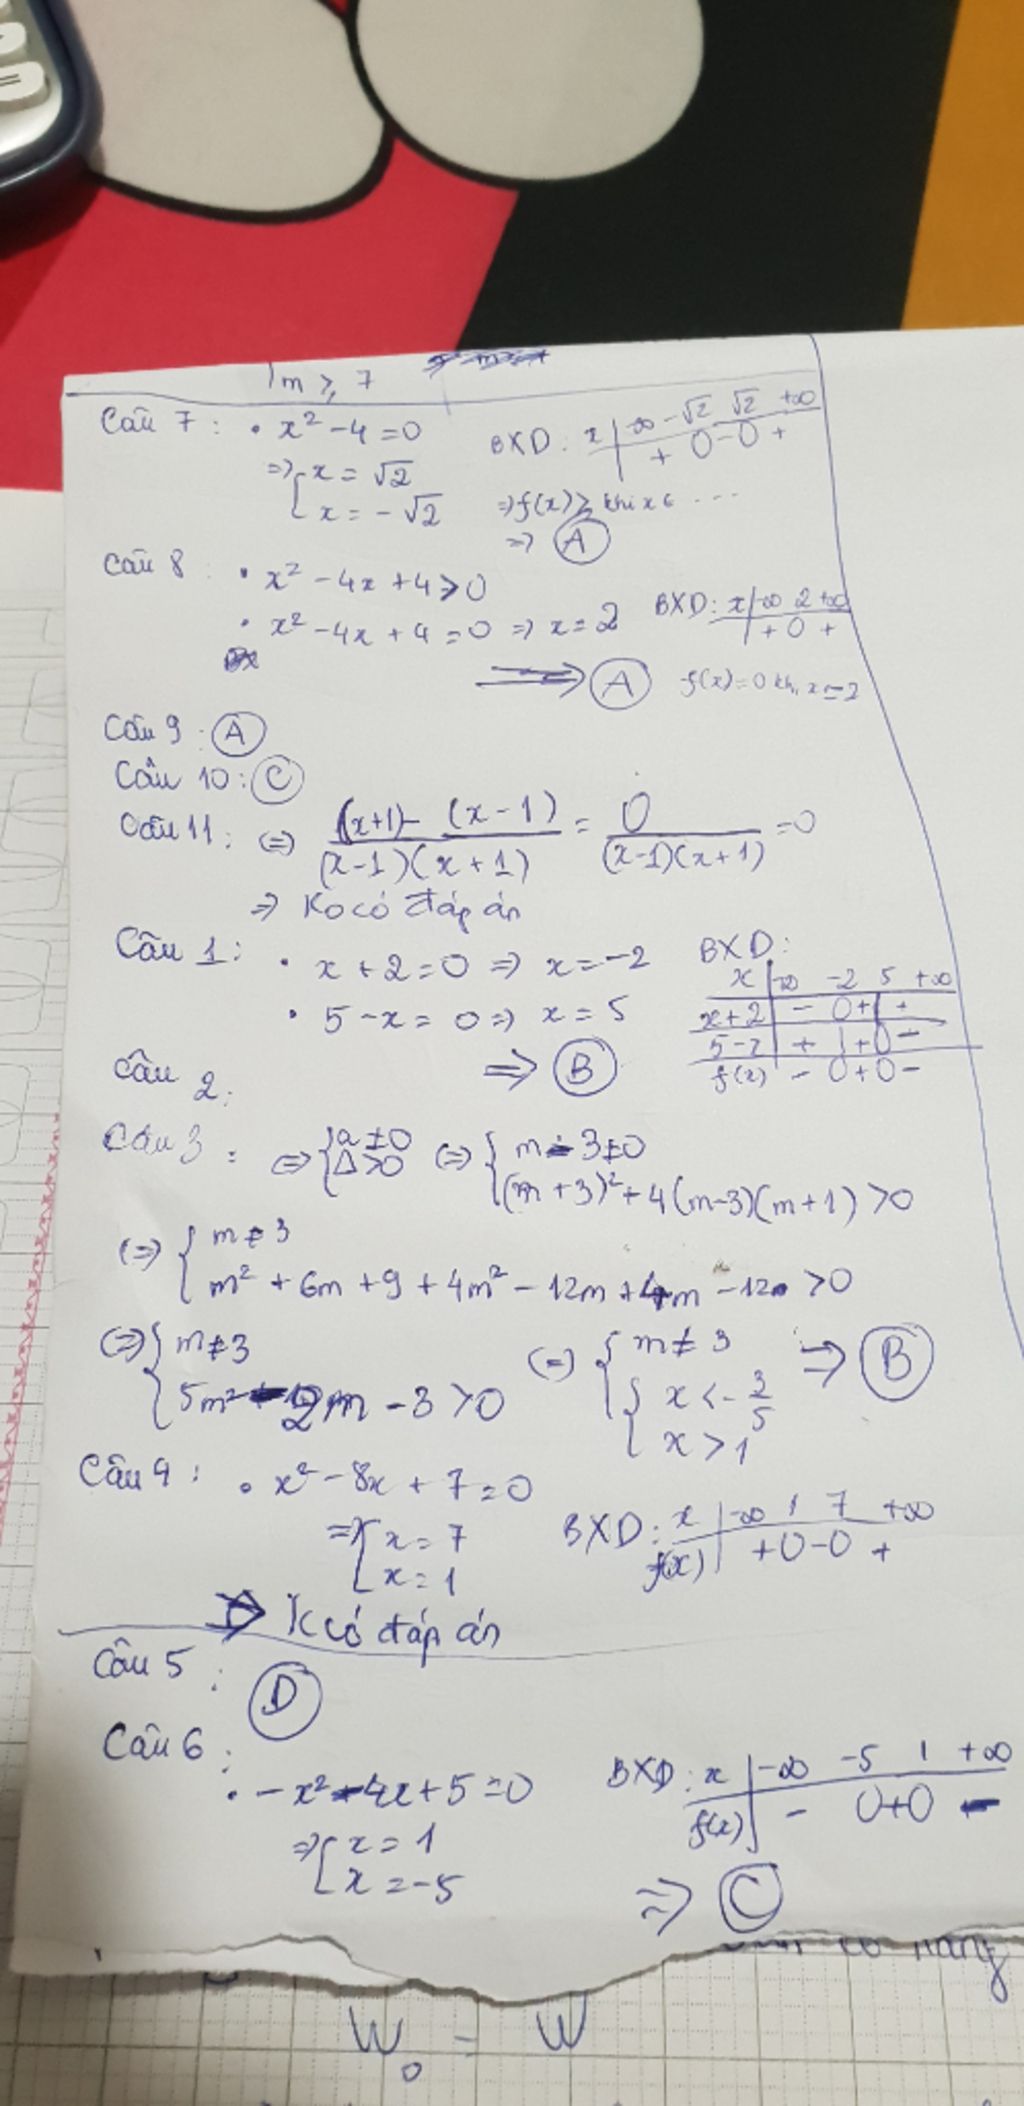 m ≥ 7
Câu 7 : • x² - 4 = 0
BXD : x | -∞ -√2 √2 +∞
+ 0 - 0 +
=> [ x = √2
x = -√2
=> f(x) ≥ khi x ∈ ...
=> A
Câu 8 : • x² - 4x + 4 ≥ 0
• x² - 4x + 4 = 0 => x = 2
BXD: x | -∞ 2 +∞
+ 0 +
=> A f(x) = 0 khi x = 2
Câu 9 : A
Câu 10 : C
Câu 11 : <=> (x+1) - (x-1) / (x-1)(x+1) = 0 / (x-1)(x+1) = 0
=> Ko có đáp án
Câu 1 : • x + 2 = 0 => x = -2
• 5 - x = 0 => x = 5
BXD:
x | -∞ -2 5 +∞
x+2 | - 0 + | +
5-x | + | + 0 -
f(x) - 0 + 0 -
=> B
Câu 2 :
Câu 3 : <=> { a ≠ 0 <=> { m - 3 ≠ 0
Δ > 0 (m + 3)² + 4(m-3)(m+1) > 0
<=> { m ≠ 3
m² + 6m + 9 + 4m² - 12m + 4m - 12 > 0
<=> { m ≠ 3 <=> { m ≠ 3 => B
5m² - 2m - 3 > 0 { x < -3/5
x > 1
Câu 4 : • x² - 8x + 7 = 0
=> [ x = 7
x = 1
BXD : x | -∞ 1 7 +∞
f(x) | + 0 - 0 +
=> K có đáp án
Câu 5 : D
Câu 6 :
• -x² - 4x + 5 = 0
=> [ x = 1
x = -5
BXD : x | -∞ -5 1 +∞
f(x) | - 0 + 0 -
=> C
năng
W₀ = W